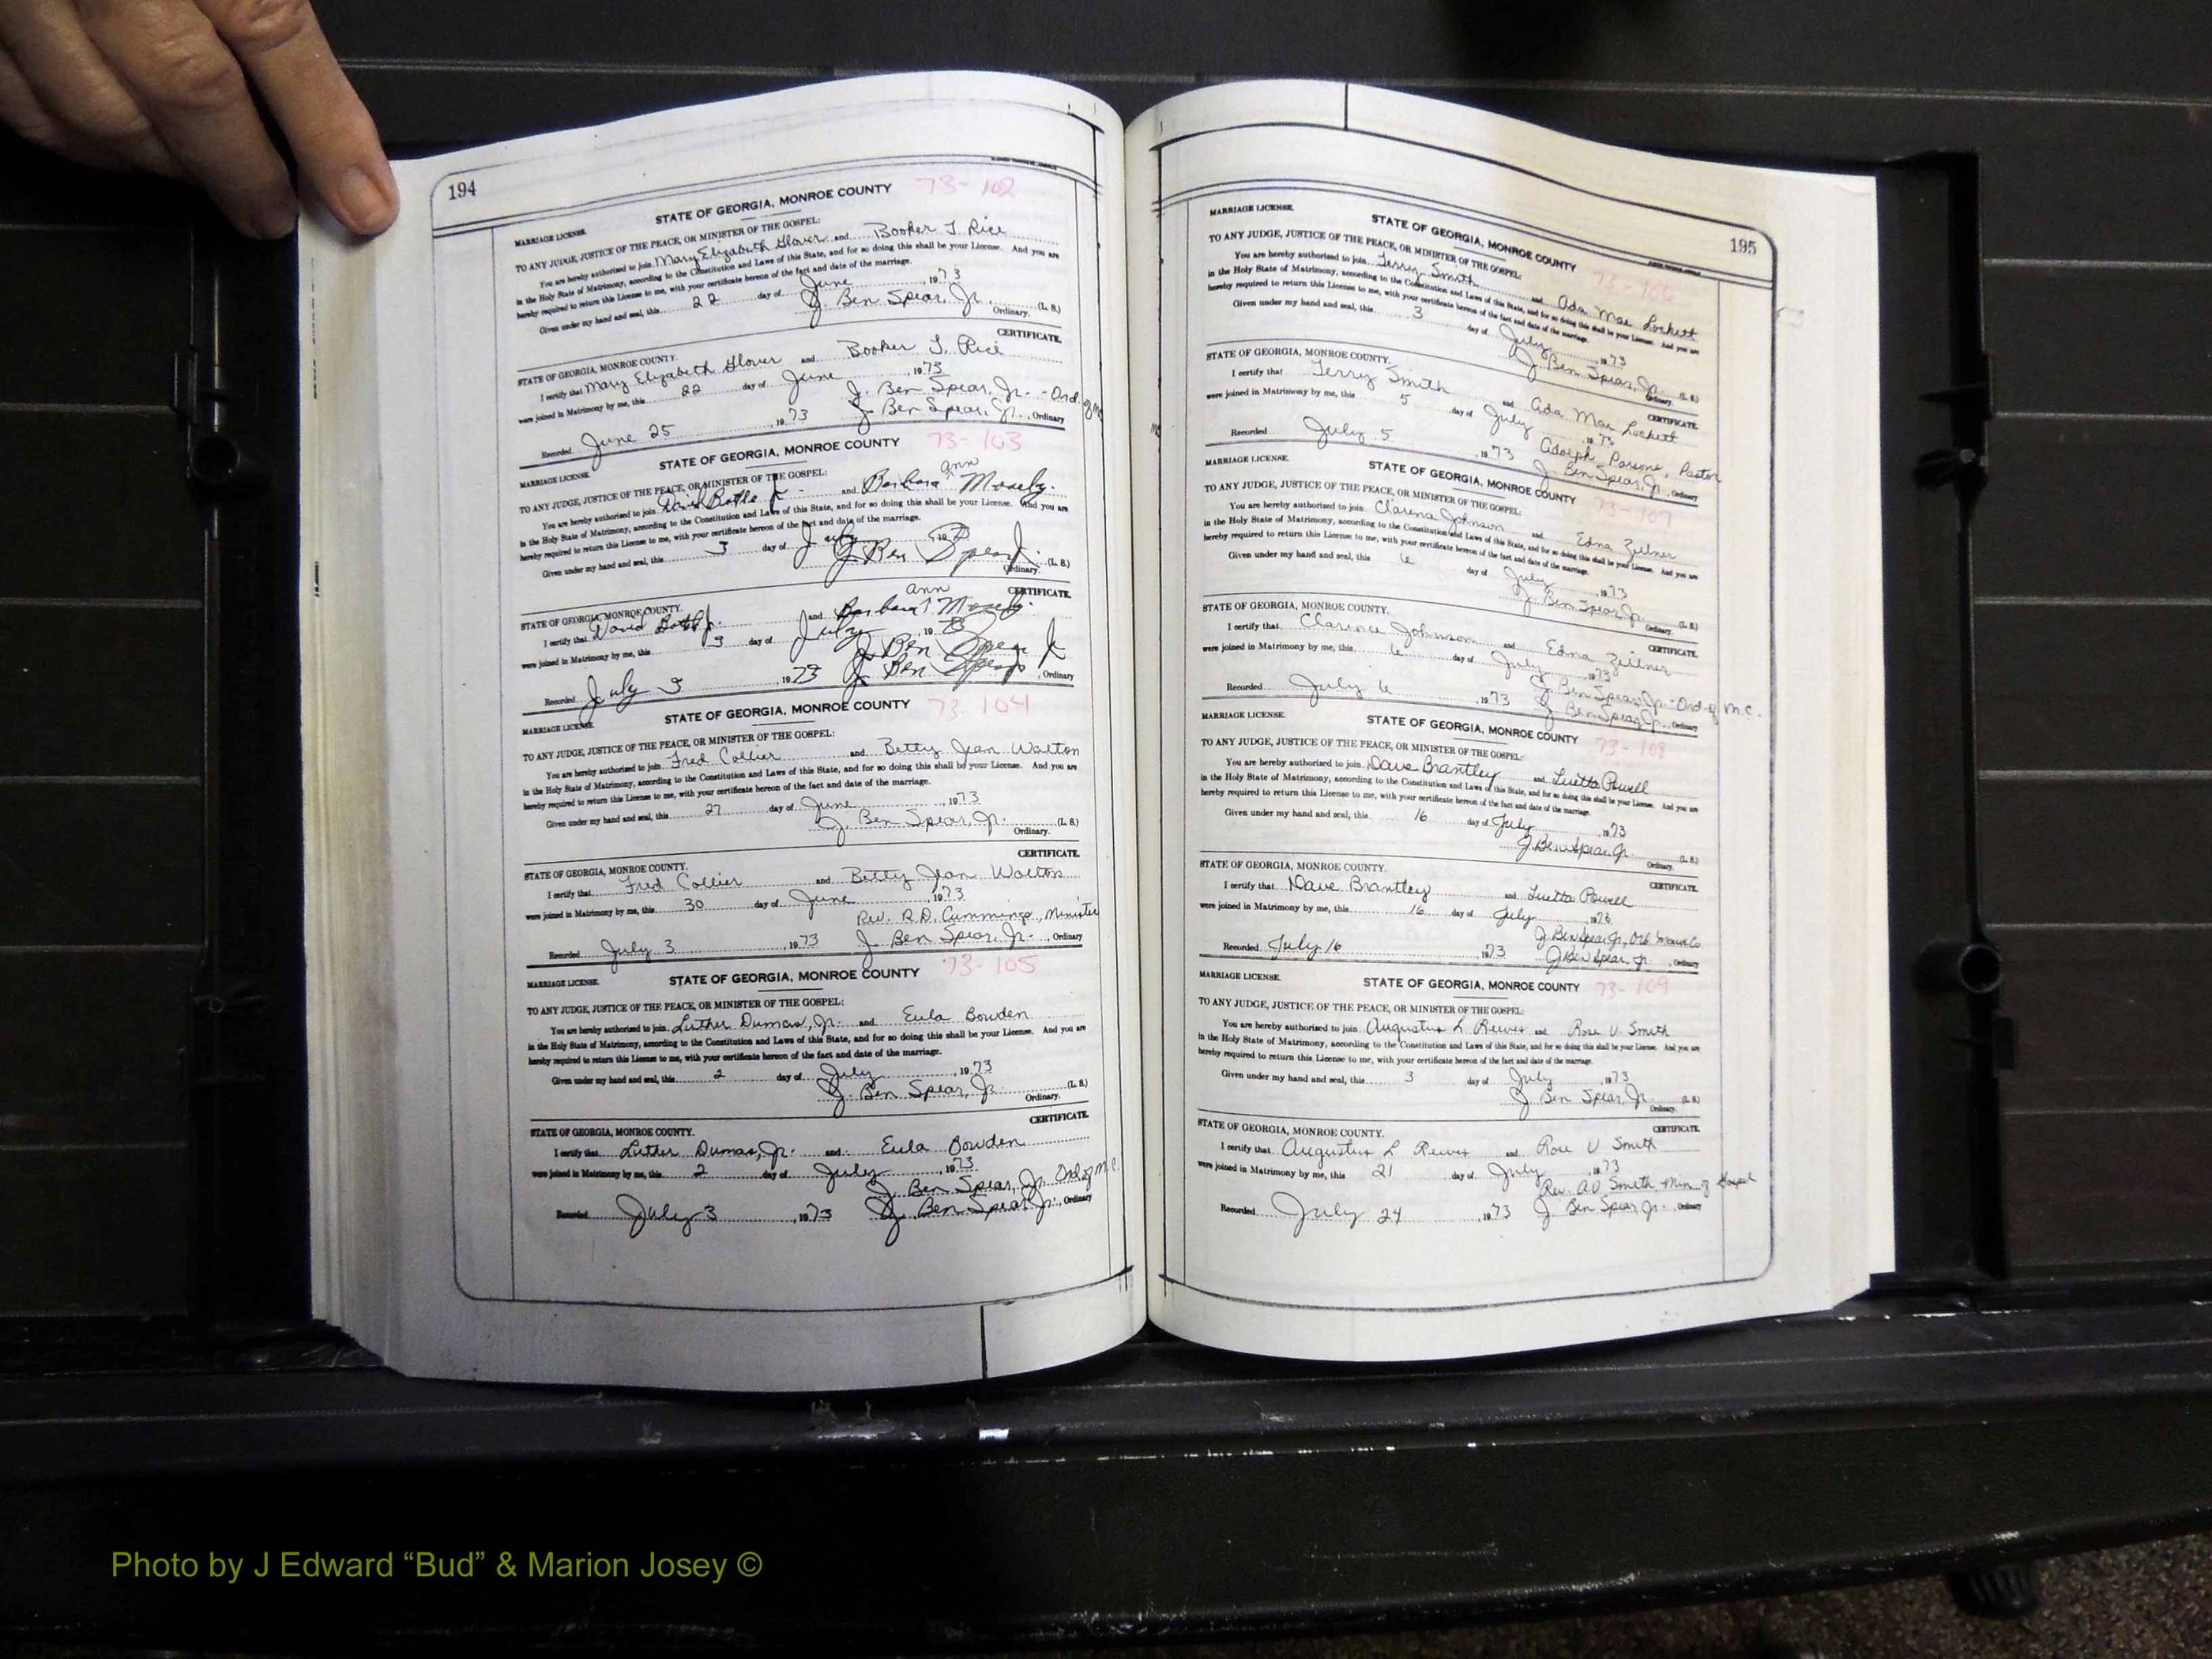 194
STATE OF GEORGIA, MONROE COUNTY 73-102
MARRIAGE LICENSE.
TO ANY JUDGE, JUSTICE OF THE PEACE, OR MINISTER OF THE GOSPEL:
You are hereby authorized to join Mary Elizabeth Glover and Booker T. Rice
in the Holy State of Matrimony, according to the Constitution and Laws of this State, and for so doing this shall be your License. And you are
hereby required to return this License to me, with your certificate hereon of the fact and date of the marriage.
Given under my hand and seal, this 22 day of June, 1973
J. Ben Spear, Jr. (L. S.)
Ordinary.
CERTIFICATE.
STATE OF GEORGIA, MONROE COUNTY.
I certify that Mary Elizabeth Glover and Booker T. Rice
were joined in Matrimony by me, this 22 day of June, 1973
J. Ben Spear, Jr. - Ord. of
Recorded June 25, 1973 J. Ben Spear, Jr., Ordinary
STATE OF GEORGIA, MONROE COUNTY 73-103
MARRIAGE LICENSE.
TO ANY JUDGE, JUSTICE OF THE PEACE, OR MINISTER OF THE GOSPEL:
You are hereby authorized to join David Jr. and Barbara Ann Mosely.
in the Holy State of Matrimony, according to the Constitution and Laws of this State, and for so doing this shall be your License. And you are
hereby required to return this License to me, with your certificate hereon of the fact and date of the marriage.
Given under my hand and seal, this 3 day of July 1973
J Ben Spear Jr. (L. S.)
Ordinary.
CERTIFICATE.
STATE OF GEORGIA, MONROE COUNTY.
I certify that David Jr. and Barbara Ann Mosely.
were joined in Matrimony by me, this 3 day of July, 1973
J. Ben Spear Jr
Recorded July 3, 1973 J. Ben Spear, Ordinary
STATE OF GEORGIA, MONROE COUNTY 73-104
MARRIAGE LICENSE.
TO ANY JUDGE, JUSTICE OF THE PEACE, OR MINISTER OF THE GOSPEL:
You are hereby authorized to join Fred Collier and Betty Jean Walton
in the Holy State of Matrimony, according to the Constitution and Laws of this State, and for so doing this shall be your License. And you are
hereby required to return this License to me, with your certificate hereon of the fact and date of the marriage.
Given under my hand and seal, this 27 day of June, 1973
J. Ben Spear, Jr. (L. S.)
Ordinary.
CERTIFICATE.
STATE OF GEORGIA, MONROE COUNTY.
I certify that Fred Collier and Betty Jean Walton
were joined in Matrimony by me, this 30 day of June, 1973
Rev. R.D. Cummings, Minister
Recorded July 3, 1973 J. Ben Spear, Jr., Ordinary
STATE OF GEORGIA, MONROE COUNTY 73-105
MARRIAGE LICENSE.
TO ANY JUDGE, JUSTICE OF THE PEACE, OR MINISTER OF THE GOSPEL:
You are hereby authorized to join Luther Dumas, Jr. and Eula Bowden
in the Holy State of Matrimony, according to the Constitution and Laws of this State, and for so doing this shall be your License. And you are
hereby required to return this License to me, with your certificate hereon of the fact and date of the marriage.
Given under my hand and seal, this 2 day of July, 1973
J. Ben Spear, Jr. (L. S.)
Ordinary.
CERTIFICATE.
STATE OF GEORGIA, MONROE COUNTY.
I certify that Luther Dumas, Jr. and Eula Bowden
were joined in Matrimony by me, this 2 day of July, 1973
J. Ben Spear, Jr. Ord. of M.C.
Recorded July 3, 1973 J. Ben Spear Jr., Ordinary
195
MARRIAGE LICENSE.
STATE OF GEORGIA, MONROE COUNTY 73-106
TO ANY JUDGE, JUSTICE OF THE PEACE, OR MINISTER OF THE GOSPEL:
You are hereby authorized to join Terry Smith and Ada Mae Lockett
in the Holy State of Matrimony, according to the Constitution and Laws of this State, and for so doing this shall be your License. And you are
hereby required to return this License to me, with your certificate hereon of the fact and date of the marriage.
Given under my hand and seal, this 3 day of July, 1973
J. Ben Spear, Jr. (L. S.)
Ordinary.
STATE OF GEORGIA, MONROE COUNTY.
CERTIFICATE.
I certify that Terry Smith and Ada Mae Lockett
were joined in Matrimony by me, this 5 day of July, 1973
Adolph Parsons, Pastor
Recorded July 5, 1973 J. Ben Spear, Jr., Ordinary
MARRIAGE LICENSE.
STATE OF GEORGIA, MONROE COUNTY 73-107
TO ANY JUDGE, JUSTICE OF THE PEACE, OR MINISTER OF THE GOSPEL:
You are hereby authorized to join Johnson and Edna Zellner
in the Holy State of Matrimony, according to the Constitution and Laws of this State, and for so doing this shall be your License. And you are
hereby required to return this License to me, with your certificate hereon of the fact and date of the marriage.
Given under my hand and seal, this 6 day of July, 1973
J. Ben Spear, Jr. (L. S.)
Ordinary.
STATE OF GEORGIA, MONROE COUNTY.
CERTIFICATE.
I certify that Clarence Johnson and Edna Zellner
were joined in Matrimony by me, this 6 day of July, 1973
J. Ben Spear, Jr. - Ord. of M.C.
Recorded July 6, 1973 J. Ben Spear, Jr., Ordinary
MARRIAGE LICENSE.
STATE OF GEORGIA, MONROE COUNTY 73-108
TO ANY JUDGE, JUSTICE OF THE PEACE, OR MINISTER OF THE GOSPEL:
You are hereby authorized to join Dave Brantley and Luetta Powell
in the Holy State of Matrimony, according to the Constitution and Laws of this State, and for so doing this shall be your License. And you are
hereby required to return this License to me, with your certificate hereon of the fact and date of the marriage.
Given under my hand and seal, this 16 day of July, 1973
J. Ben Spear Jr. (L. S.)
Ordinary.
STATE OF GEORGIA, MONROE COUNTY.
CERTIFICATE.
I certify that Dave Brantley and Luetta Powell
were joined in Matrimony by me, this 16 day of July, 1973
J. Ben Spear Jr.,
Recorded July 16, 1973 J Ben Spear Jr., Ordinary
MARRIAGE LICENSE.
STATE OF GEORGIA, MONROE COUNTY 73-109
TO ANY JUDGE, JUSTICE OF THE PEACE, OR MINISTER OF THE GOSPEL:
You are hereby authorized to join Augustus L Reeves and Rose V Smith
in the Holy State of Matrimony, according to the Constitution and Laws of this State, and for so doing this shall be your License. And you are
hereby required to return this License to me, with your certificate hereon of the fact and date of the marriage.
Given under my hand and seal, this 3 day of July, 1973
J Ben Spear, Jr. (L. S.)
Ordinary.
STATE OF GEORGIA, MONROE COUNTY.
CERTIFICATE.
I certify that Augustus L Reeves and Rose V Smith
were joined in Matrimony by me, this 21 day of July, 1973
Rev. A.V. Smith, Min. of Gospel
Recorded July 24, 1973 J Ben Spear, Jr., Ordinary
Photo by J Edward “Bud” & Marion Josey ©